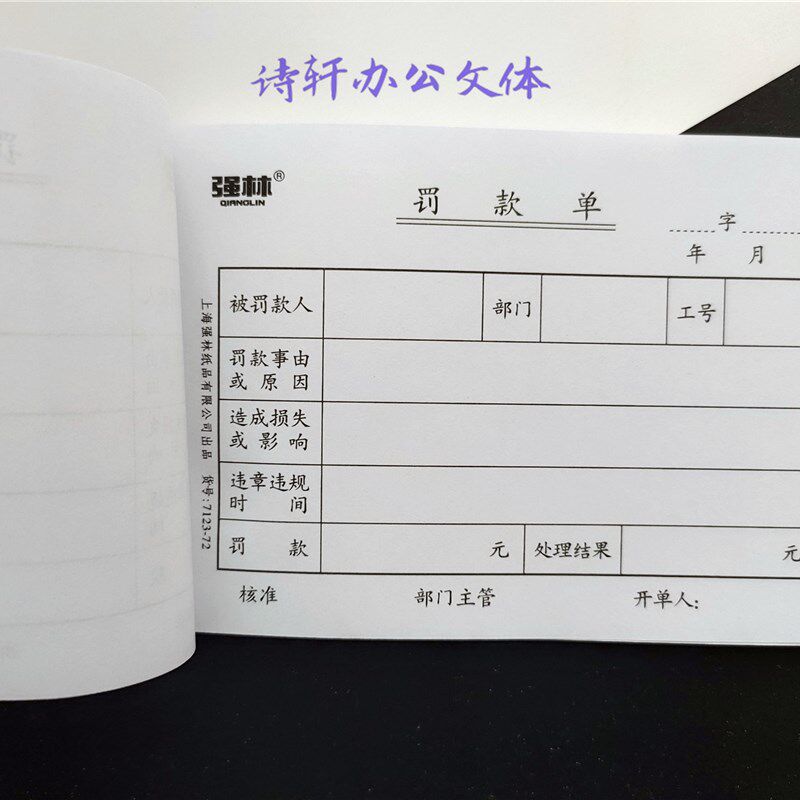 诗轩办公文体
强林®
QIANGLIN
罚 款 单
字
年 月
被罚款人 部门 工号
罚款事由
或原因
造成损失
或影响
违章违规
时间
罚款 元 处理结果 元
核准 部门主管 开单人:
上海强林纸品有限公司出品 货号:7123-72